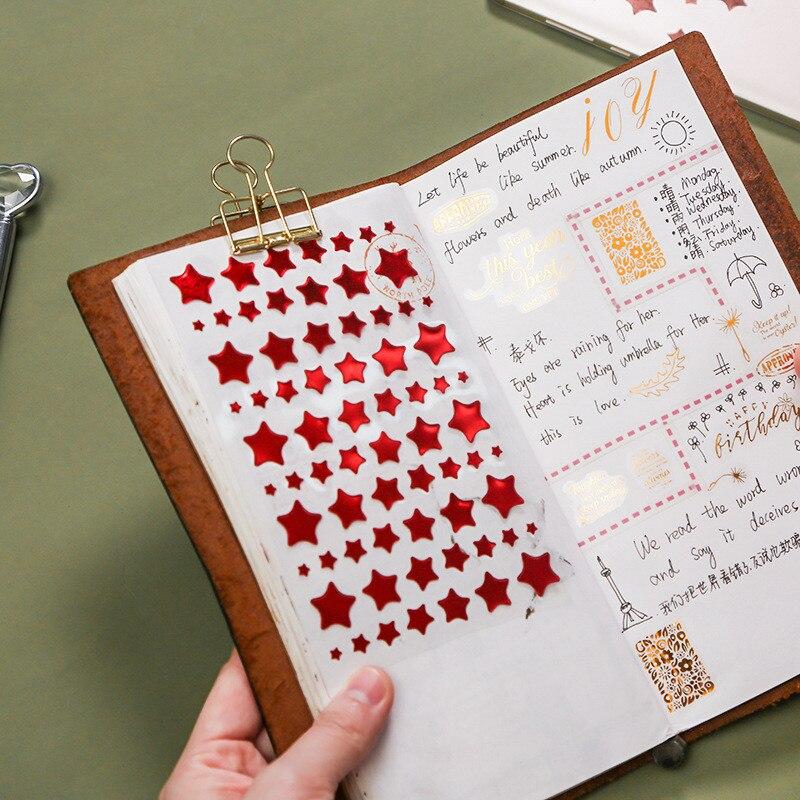 joy
Let life be beautiful
like summer.
flowers and death like autumn.
NORTH POLE
Monday.
Tuesday
Wednesday.
Thursday.
Friday.
Saturday.
this year
best
Keep it up!
APPROVED
#. 泰戈尔
Eyes are raining for her.
Heart is holding umbrella for her.
this is love. #.
HAPPY
birthday
We read the word wrong
and say it deceives
我们把世界看错了,反说它欺骗